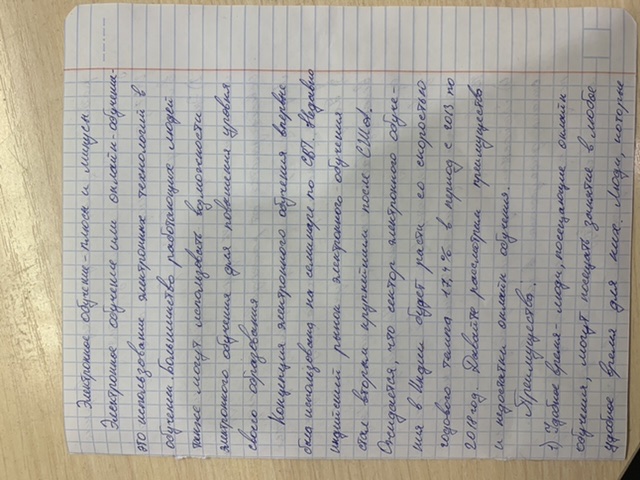 Электронное обучение - плюсы и минусы
Электронное обучение или онлайн обучение-
это использование электронных технологий в
обучении. Большинство работающих людей
также могут использовать возможности
электронного обучения для повышения уровня
своего образования
Концепция электронного обучения впервые
была использована на семинаре по СВТ. Недавно
индийский рынок электронного обучения
стал вторым крупнейшим после США.
Ожидается, что сектор электронного обуче-
ния в Индии будет расти со скоростью
годового темпа 17,4% в период с 2013 по
2018 год. Давайте рассмотрим преимущества
и недостатки онлайн обучения.
Преимущества.
1) Удобное время - люди, посещающие онлайн
обучения, могут посещать занятие в любое
удобное время для них. Люди, которые